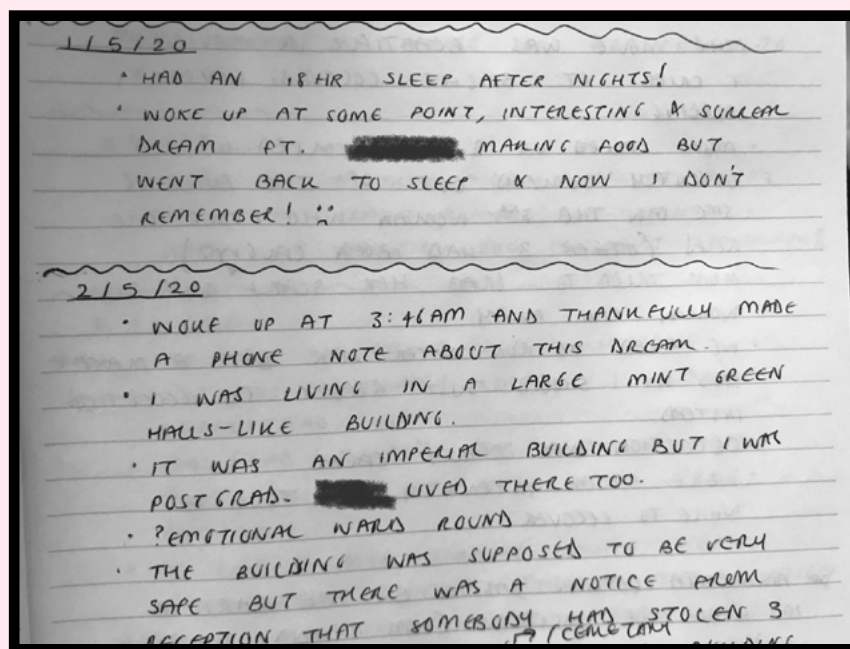 1/5/20
· HAD AN 18 HR SLEEP AFTER NIGHTS!
· WOKE UP AT SOME POINT, INTERESTING & SURREAL
DREAM FT. MAKING FOOD BUT
WENT BACK TO SLEEP & NOW I DON'T
REMEMBER! :(
2/5/20
· WOKE UP AT 3:46AM AND THANKFULLY MADE
A PHONE NOTE ABOUT THIS DREAM.
· I WAS LIVING IN A LARGE MINT GREEN
HALLS-LIKE BUILDING.
· IT WAS AN IMPERIAL BUILDING BUT I WAS
POSTGRAD. LIVED THERE TOO.
· ?EMOTIONAL WARD ROUND
· THE BUILDING WAS SUPPOSED TO BE VERY
SAFE BUT THERE WAS A NOTICE FROM
RECEPTION THAT SOMEBODY HAD STOLEN 3
/CEMETARY
BUILDING